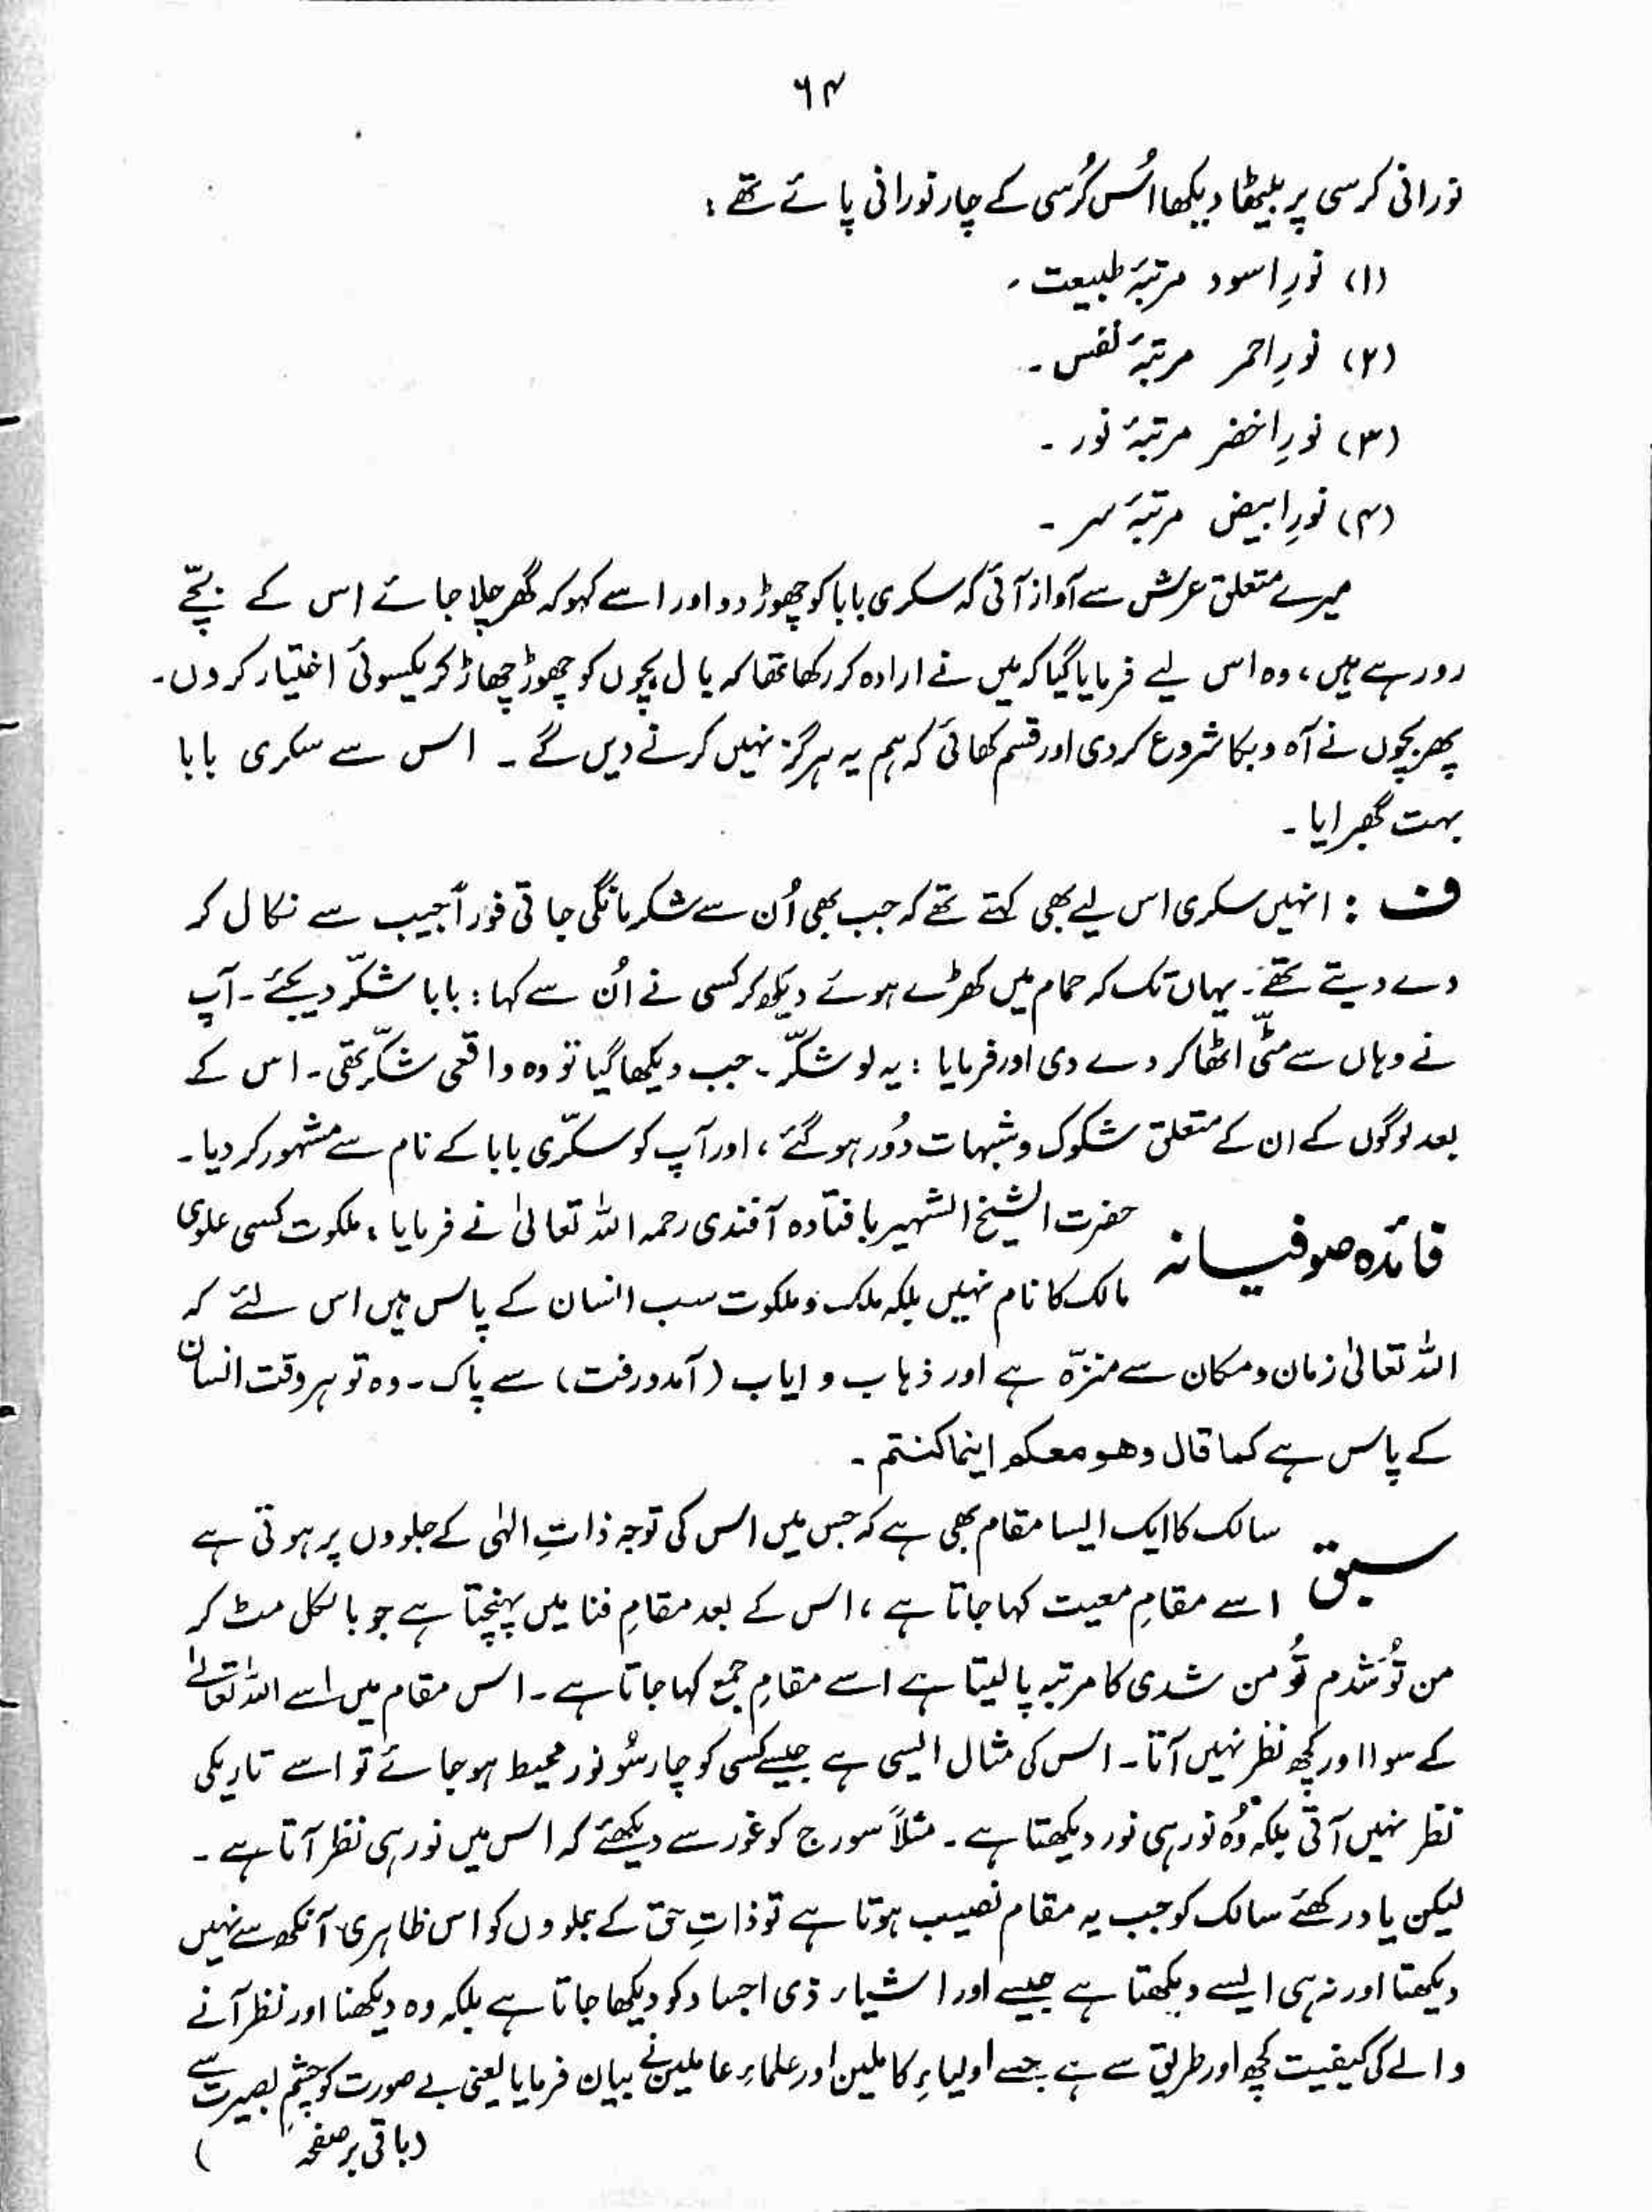 ۶۴
نورانی کرسی پر بیٹھا دیکھا اُس کُرسی کے چار نورانی پائے تھے :
(۱) نورِ اسود مرتبۂ طبیعت ۔
(۲) نورِ احمر مرتبۂ نفس ۔
(۳) نورِ اخضر مرتبۂ نور ۔
(۴) نورِ ابیض مرتبۂ سر ۔
میرے متعلق عرش سے آواز آئی کہ سکری بابا کو چھوڑ دو اور اسے کہو کہ گھر چلا جائے اس کے بچّے
رو رہے ہیں ، وہ اس لیے فرمایا گیا کہ میں نے ارادہ کر رکھا تھا کہ بال بچوں کو چھوڑ چھاڑ کر یکسوئی اختیار کر دوں ۔
پھر بچوں نے آہ و بکا شروع کر دی اور قسم کھائی کہ ہم یہ ہرگز نہیں کرنے دیں گے ۔ اس سے سکری بابا
بہت گھبرایا ۔
ف : انہیں سکری اس لیے بھی کہتے تھے کہ جب بھی اُن سے شکر مانگی جاتی فوراً جیب سے نکال کر
دے دیتے تھے ۔ یہاں تک کہ حمام میں کھڑے ہوئے دیکھ کر کسی نے اُن سے کہا : بابا شکّر دیجئے ۔ آپ
نے وہاں سے مٹّی اٹھا کر دے دی اور فرمایا : یہ لو شکّر ۔ جب دیکھا گیا تو وہ واقعی شکّر تھی ۔ اس کے
بعد لوگوں کے ان کے متعلق شکوک و شبہات دُور ہو گئے ، اور آپ کو سکّری بابا کے نام سے مشہور کر دیا ۔
فائدہ صوفیانہ حضرت الشیخ الشہیر بافتادہ آفندی رحمہ اللہ تعالیٰ نے فرمایا : ملکوت کسی علوی
مالک کا نام نہیں بلکہ ملک و ملکوت سب انسان کے پاس ہیں اس لئے کہ
اللہ تعالیٰ زمان و مکان سے منزّہ ہے اور ذہاب و ایاب (آمد و رفت) سے پاک ۔ وہ تو ہر وقت انسان
کے پاس ہے کما قال وھو معکم اینما کنتم ۔
سبق سالک کا ایک ایسا مقام بھی ہے کہ جس میں اس کی توجہ ذاتِ الٰہی کے جلووں پر ہوتی ہے
اسے مقامِ معیت کہا جاتا ہے ، اس کے بعد مقامِ فنا میں پہنچتا ہے جو بالکل مٹ کر
من تُو شُدم تُو من شدی کا مرتبہ پا لیتا ہے اسے مقامِ جمع کہا جاتا ہے ۔ اس مقام میں اسے اللہ تعالیٰ
کے سوا اور کچھ نظر نہیں آتا ۔ اس کی مثال ایسی ہے جیسے کسی کو چار سُو نور محیط ہو جائے تو اسے تاریکی
نظر نہیں آتی بلکہ وُہ نور ہی نور دیکھتا ہے ۔ مثلاً سورج کو غور سے دیکھئے کہ اس میں نور ہی نظر آتا ہے ۔
لیکن یاد رکھئے سالک کو جب یہ مقام نصیب ہوتا ہے تو ذاتِ حق کے جلووں کو اس ظاہری آنکھ سے نہیں
دیکھتا اور نہ ہی ایسے دیکھتا ہے جیسے اور اشیاء ذی اجساد کو دیکھا جاتا ہے بلکہ وہ دیکھنا اور نظر آنے
والے کی کیفیت کچھ اور طریق سے ہے جسے اولیاءِ کاملین اور علماءِ عاملین نے بیان فرمایا یعنی بے صورت کو چشمِ بصیرت سے
(باقی بر صفحہ )